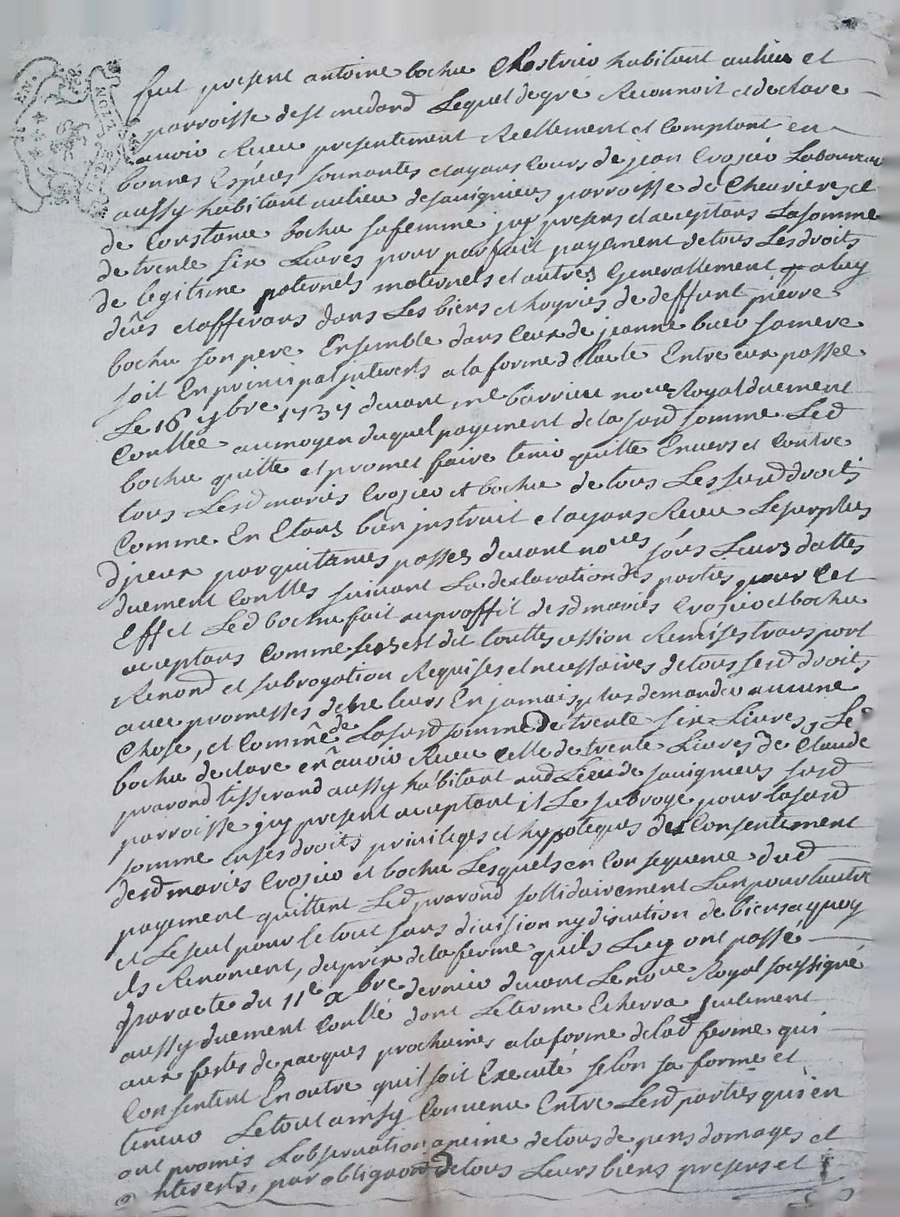 fut present antoine bochu habitant aulieu et
parroisse de st medard Lequel de gré Reconnoit et declare
avoir Receu presentement Reellement et Comptant en
bonnes Espéces sonnantes et ayans Cours de jean Crozier Laboureur
aussy habitant aulieu de sauigneux parroisse de Cheurières et
de Constance bochu safemme jcy presens et acceptans Lasomme
de trente six Liures pour parfait payement detous Les droits
de legitime paternels maternels et autres Generallement aluy
deûs et afferans dans Les biens et hoyries de deffunt pierre
bochu son pere Ensemble dans Ceux de jeanne samere
soit En principal jnterests a la forme de lacte Entre eux passée
Le 16 ybre devant me nore Royal duement
Conllée aumoyen duquel payement de la susd somme Led
bochu quitte et promet faire tenir quitte Envers et Contre
tous Lesd mariés Crozier et bochu de tous Les susd droits
Comme En Etant bien jnstruit et ayans Receu Lesurplus
djceux par quitances passées devant nores sous Leurs dattes
duement Conllées suivant La declaration des parties pour Cet
Effet Led bochu fait auproffit desd mariés Crozier et bochu
acceptans Comme dit touttes cession Remises transport
Renond et subrogation Requises et necessaires de tous sesd droits
avec promesses de ne leurs En jamais plus demander aucune
Chose, et Comme de Lasusd somme de trente six Liures, Le
bochu declare en avoir Receu Celle de trente Liures de Claude
parond tisserand aussy habitant aud Lieu de sauigneux susd
parroisse jcy present acceptant il Le subroge pour lasusd
somme En ses droits privileges et hypoteques du Consentement
desd mariés Crozier et bochu Lesquels en Consequence dud
payement quittent Led parond sollidairement Lun pour Lautre
et Leseul pour le tout sans division ny discution de biens a quoy
ils Renoncent, du prix de la ferme quils Luy ont passé
par acte du 11e xbre dernier devant Le nore Royal soussigné
aussy duement Conllé dont Leterme Echerra seulement
aux festes de pacques prochaines a la forme de lad ferme qui
Consentent En outre quil soit Executé selon sa forme et
teneur Le tout ainsy Convenu Entre Lesd parties qui en
ont promis Lobservation a peine de tous depens domages et
jnterests, par obligaon de tous Leurs biens presens et